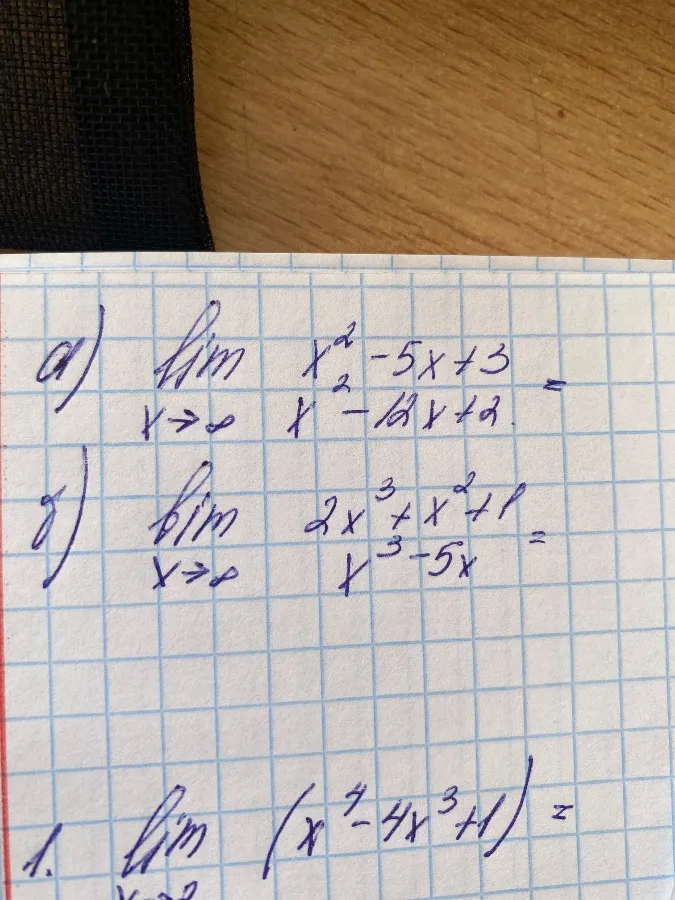 а) lim x² - 5x + 3
x→∞ x² - 12x + 2. =
б) lim 2x³ + x² + 1
x→∞ x³ - 5x =
1. lim (x⁴ - 4x³ + 1) =